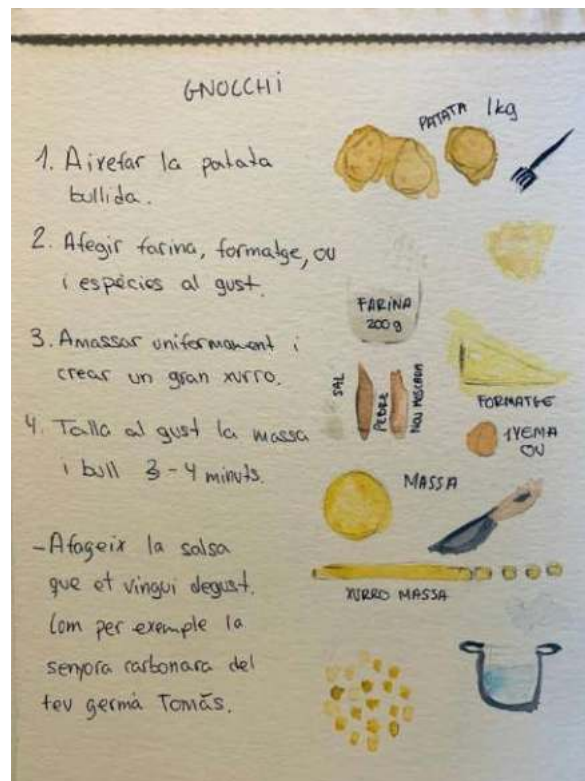 GNOCCHI
1. Aixefar la patata
bullida.
2. Afegir farina, formatge, ou
i espècies al gust.
3. Amassar uniformament i
crear un gran xurro.
4. Talla al gust la massa
i bull 3-4 minuts.
-Afageix la salsa
que et vingui degust.
Com per exemple la
senyora carbonara del
teu germà Tomàs.
PATATA 1kg
FARINA
200g
SAL
PEBRE
NOU MOSCADA
FORMATGE
1 YEMA
OU
MASSA
XURRO MASSA